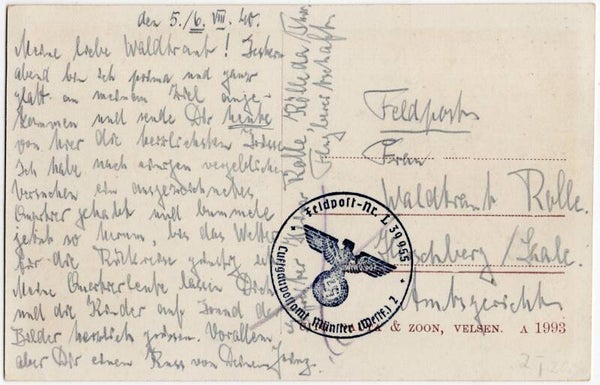 den 5./6. VIII. 40.
Meine liebe Waldtraut! Gestern
abend bin ich prima und ganz
glatt an meinem Ziel ange-
kommen und sende Dir heute
von hier die herzlichsten Grüsse
Ich habe nach einigen vergeblichen
Versuchen ein ausgezeichnetes
Quartier gehabt und bummele
jetzt so herum, bis das Wetter
für die Rückreise günstig ist
Meine Quartiersleute lassen Dich
und die Kinder auf Grund der
Bilder herzlich grüssen. Vorallem
aber Dir einen Kuss von Deinem
Rolle, Kölleda/Thür.
Fliegerhorst
Feldpost
Frau
Waldtraut Rolle.
Hirschberg/Saale.
Amtsgericht
Feldpost-Nr. L 39955
Luftgaupostamt Münster (Westf.) 2
& ZOON, VELSEN. A 1993